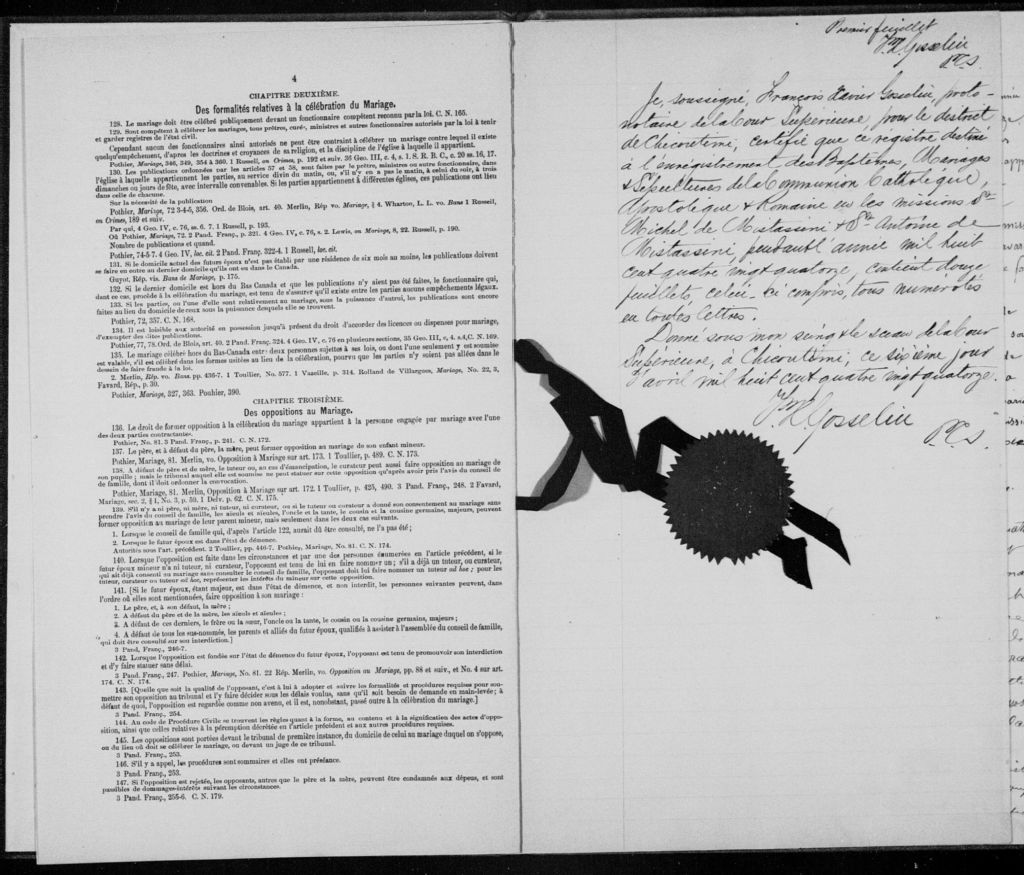 4
CHAPITRE DEUXIÈME.
Des formalités relatives à la célébration du Mariage.
128. Le mariage doit être célébré publiquement devant un fonctionnaire compétent reconnu par la loi. C. N. 165.
129. Sont compétents à célébrer les mariages, tous prêtres, curés, ministres et autres fonctionnaires autorisés par la loi à tenir
et garder registres de l'état civil.
Cependant aucun des fonctionnaires ainsi autorisés ne peut être contraint à célébrer un mariage contre lequel il existe
quelqu'empêchement, d'après les doctrines et croyances de sa religion, et la discipline de l'église à laquelle il appartient.
Pothier, Mariage, 346, 349, 354 à 360. 1 Russell, on Crimes, p. 192 et suiv. 36 Geo. III, c. 4, s. 1. S. R. B. C., c, 20 ss. 16, 17.
130. Les publications ordonnées par les articles 57 et 58, sont faites par le prêtre, ministres ou autre fonctionnaire, dans
l'église à laquelle appartiennent les parties, au service divin du matin, ou, s'il n'y en a pas le matin, à celui du soir, à trois
dimanches ou jours de fête, avec intervalle convenables. Si les parties appartiennent à différentes églises, ces publications ont lieu
dans celle de chacune.
Sur la nécessité de la publication
Pothier, Mariage, 72 3-4-5, 356. Ord. de Blois, art. 40. Merlin, Rép vo. Mariage, § 4. Wharton, L. L. vo. Bans 1 Russell,
on Crimes, 189 et suiv.
Par qui, 4 Geo. IV, c. 76, ss. 6. 7. 1 Russell, p. 193.
Où Pothier, Mariage, 72. 2 Pand. Franç., p. 321. 4 Geo. IV, c. 76, s. 2. Lewis, on Mariage, 8, 22. Russell, p. 190.
Nombre de publications et quand.
Pothier, 74-5-7. 4 Geo. IV, loc. cit. 2 Pand. Franç. 322-4. 1 Russell, loc. cit.
131. Si le domicile actuel des futurs époux n'est pas établi par une résidence de six mois au moins, les publications doivent
se faire en outre au dernier domicile qu'ils ont eu dans le Canada.
Guyot, Rép. vis. Bans de Mariage, p. 175.
132. Si le dernier domicile est hors du Bas Canada et que les publications n'y aient pas été faites, le fonctionnaire qui,
dans ce cas, procède à la célébration du mariage, est tenu de s'assurer qu'il existe entre les parties aucuns empêchements légaux.
133. Si les parties, ou l'une d'elles sont relativement au mariage, sous la puissance d'autrui, les publications sont encore
faites au lieu du domicile de ceux sous la puissance desquels elle se trouvent.
Pothier, 72, 357. C. N. 168.
134. Il est loisible aux autorité en possession jusqu'à présent du droit d'accorder des licences ou dispenses pour mariage,
d'exempter des dites publications.
Pothier, 77, 78. Ord. de Blois, art. 40. 2 Pand. Franç. 324. 4 Geo. IV., c. 76 en plusieurs sections, 35 Geo. III, c. 4, s.4, C. N. 169.
135. Le mariage célébré hors du Bas-Canada entre deux personnes sujettes à ses lois, ou dont l'une seulement y est soumise
est valable, s'il est célébré dans les formes usitées au lieu de la célébration, pourvu que les parties n'y soient pas allées dans le
dessein de faire fraude à la loi.
2. Merlin, Rép. vo. Bans. pp. 436-7. 1 Toullier, No. 577. 1 Vazeille, p. 314. Rolland de Villargues, Mariage, No. 22, 3,
Favard, Rép., p. 30.
Pothier, Mariage, 327, 363. Pouhier, 390.
CHAPITRE TROISIÈME.
Des oppositions au Mariage.
136. Le droit de former opposition à la célébration du mariage appartient à la personne engagée par mariage avec l'une
des deux parties contractantes.
Pothier, No. 81. 3 Pand. Franç., p. 241. C. N. 172.
137. Le père, et à défaut du père, la mère, peut former opposition au mariage de son enfant mineur.
Pothier, Mariage, 81. Merlin, vo. Opposition à Mariage sur art. 173. 1 Toullier, p. 489. C. N. 173.
138. A défaut de père et de mère, le tuteur ou, au cas d'émancipation, le curateur peut aussi faire opposition au mariage de
son pupille ; mais le tribunal auquel elle est soumise ne peut statuer sur cette opposition qu'après avoir pris l'avis du conseil de
de famille, dont il doit ordonner la convocation.
Pothier, Mariage, 81. Merlin, Opposition à Mariage sur art. 172. 1 Toullier, p. 425, 490. 3 Pand. Franç., 248. 2 Favard,
Mariage, sec. 2, § 1, No. 3, p. 59. 1 Delv. p. 62. C. N. 175.
139. S'il n'y a ni père, ni mère, ni tuteur, ni curateur, ou si le tuteur ou curateur a donné son consentement au mariage sans
prendre l'avis du conseil de famille, les aïeuls et aïeules, l'oncle et la tante, le cousin et la cousine germains, majeurs, peuvent
former opposition au mariage de leur parent mineur, mais seulement dans les deux cas suivants.
1. Lorsque le conseil de famille qui, d'après l'article 122, aurait dû être consulté, ne l'a pas été ;
2. Lorsque le futur époux est dans l'état de démence.
Autorités sous l'art. précédent. 2 Toullier, pp. 446-7. Pothier, Mariage, No. 81. C. N. 174.
140. Lorsque l'opposition est faite dans les circonstances et par une des personnes énumérées en l'article précédent, si le
futur époux mineur n'a ni tuteur, ni curateur, l'opposant est tenu de lui en faire nommer un ; s'il a déjà un tuteur, ou curateur,
qui ait déjà consenti au mariage sans consulter le conseil de famille, l'opposant doit lui faire nommer un tuteur ad hoc ; pour les
tuteur, curateur ou tuteur ad hoc, représenter les intérêts du mineur sur cette opposition.
141. [Si le futur époux, étant majeur, est dans l'état de démence, et non interdit, les personnes suivantes peuvent, dans
l'ordre où elles sont mentionnées, faire opposition à son mariage :
1. Le père, et, à son défaut, la mère ;
2. A défaut du père et de la mère, les aïeuls et aïeules ;
3. A défaut de ces derniers, le frère ou la sœur, l'oncle ou la tante, le cousin ou la cousine germains, majeurs ;
4. A défaut de tous les sus-nommés, les parents et alliés du futur époux, qualifiés à assister à l'assemblée du conseil de famille,
qui doit être consulté sur son interdiction.]
3 Pand. Franç., 246-7.
142. Lorsque l'opposition est fondée sur l'état de démence du futur époux, l'opposant est tenu de promouvoir son interdiction
et d'y faire statuer sans délai.
3 Pand. Franç., 247. Pothier, Mariage, No. 81. 22 Rép. Merlin, vo. Opposition au Mariage, pp. 88 et suiv., et No. 4 sur art.
174. C. N. 174.
143. [Quelle que soit la qualité de l'opposant, c'est à lui à adopter et suivre les formalités et procédures requises pour sou-
mettre son opposition au tribunal et l'y faire décider sous les délais voulus, sans qu'il soit besoin de demande en main-levée ; à
défaut de quoi, l'opposition est regardée comme non avenu, et il est, nonobstant, passé outre à la célébration du mariage.]
3 Pand. Franç., 254.
144. Au code de Procédure Civile se trouvent les règles quant à la forme, au contenu et à la signification des actes d'oppo-
sition, ainsi que celles relatives à la péremption décrétée en l'article précédent et aux autres procédures requises.
145. Les oppositions sont portées devant le tribunal de première instance, du domicile de celui au mariage duquel on s'oppose,
ou du lieu où doit se célébrer le mariage, ou devant un juge de ce tribunal.
3 Pand. Franç., 253.
146. S'il y a appel, les procédures sont sommaires et elles ont préséance.
3 Pand. Franç., 253.
147. Si l'opposition est rejetée, les opposants, autres que le père et la mère, peuvent être condamnés aux dépens, et sont
passibles de dommages-intérêts suivant les circonstances.
3 Pand. Franç., 255-6. C. N. 179.
Premier feuillet
F. X. Gosselin
P.C.S.
Je, soussigné, François Xavier Gosselin, proto-
notaire de la Cour Supérieure, pour le district
de Chicoutimi, certifie que ce registre destiné
à l'enregistrement des Baptêmes, Mariages
& Sépultures de la Communion Catholique,
Apostolique & Romaine en les missions St
Michel de Mistassini & St Antoine de
Mistassini, pendant l'année mil huit
cent quatre vingt quatorze, contient douze
feuillets, celui-ci compris, tous numérotés
en toutes lettres.
Donné sous mon seing & le sceau de la Cour
Supérieure, à Chicoutimi, ce sixième jour
d'avril mil huit cent quatre vingt quatorze.
F. X. Gosselin
P.C.S.